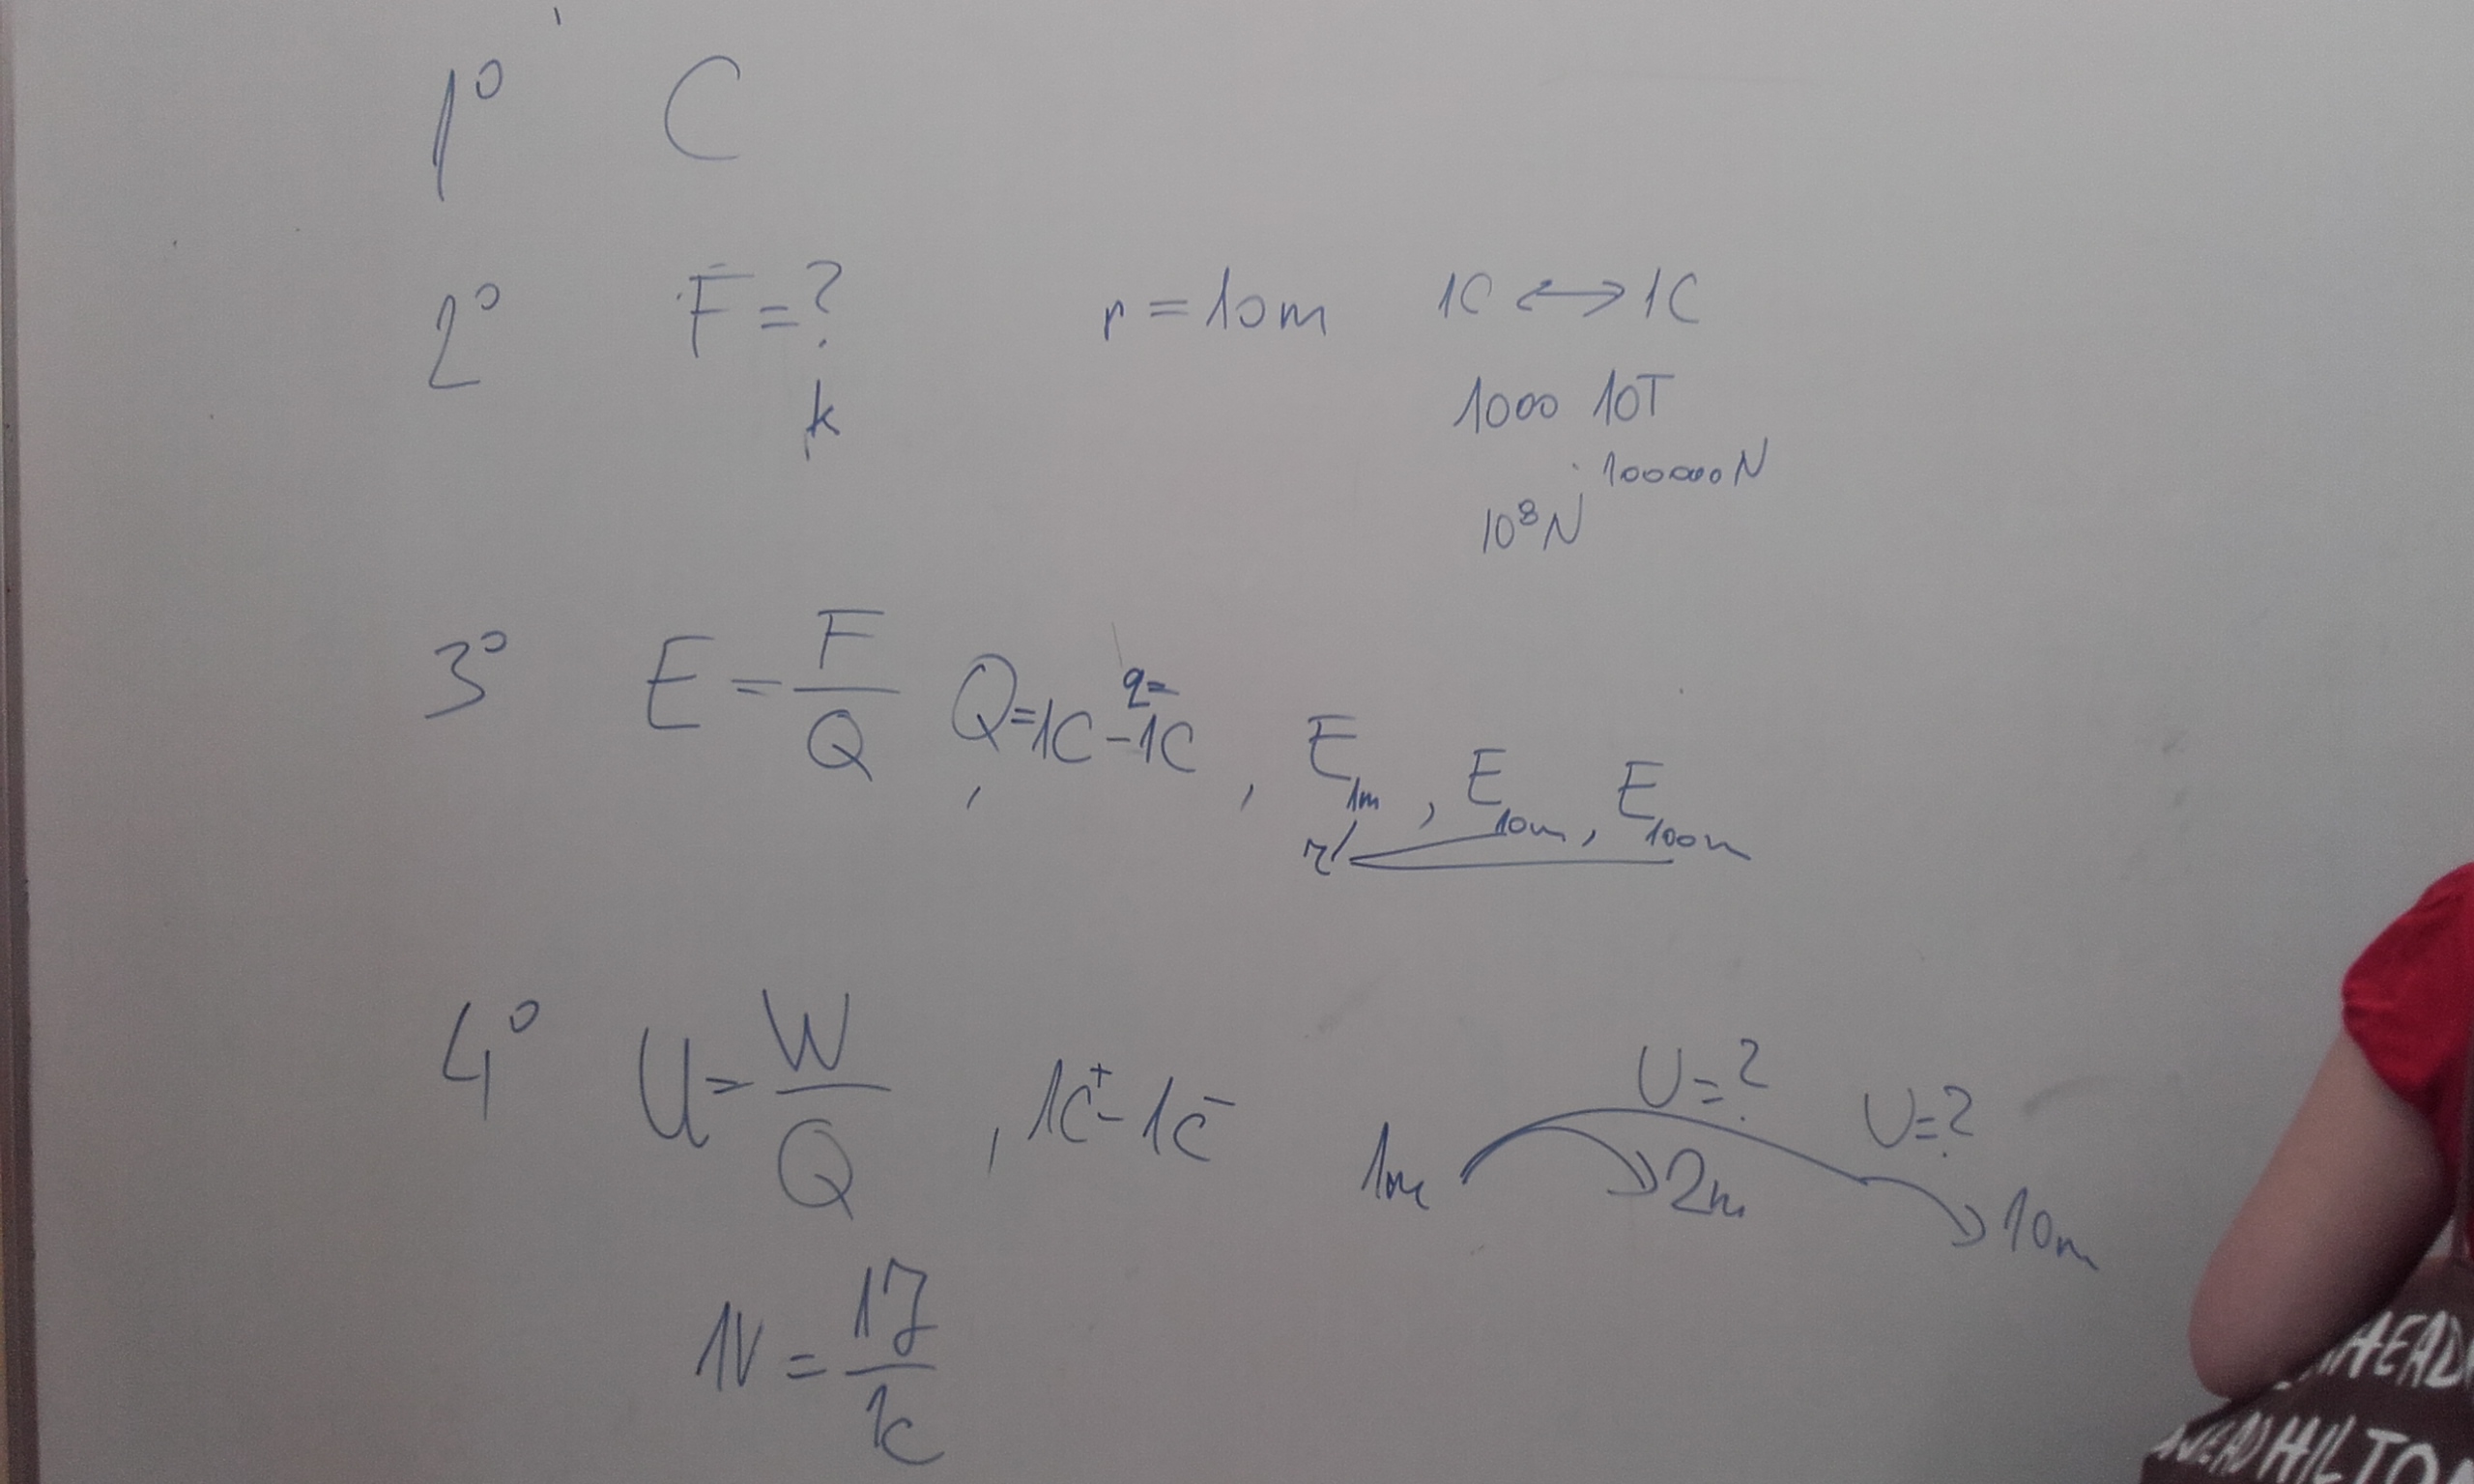 1° C
2° F = ? r = 10m 1C ↔ 1C
k
1000 10T
100000N
10⁸N
3° E = F/Q , Q = 1C - 1C , E1m , E10m , E100m
q=
r
4° U = W/Q , 1C⁺ - 1C⁻ 1m 2m 10m
U = ? U = ?
1V = 1J/1C
AHEAD
WEAD HILTO